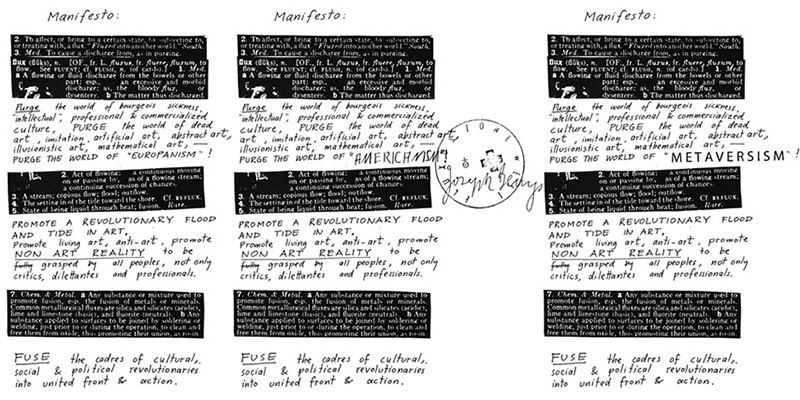 Manifesto:
2. To affect, or bring to a certain state, by subjecting to,
or treating with, a flux. "Fluxed into another world." South.
3. Med. To cause a discharge from, as in purging.
flux (flŭks), n. [OF., fr. L. fluxus, fr. fluere, fluxum, to
flow. See FLUENT; cf. FLUSH, n. (of cards).] 1. Med.
a A flowing or fluid discharge from the bowels or other
part; esp., an excessive and morbid
discharge; as, the bloody flux, or
dysentery. b The matter thus discharged.
Purge the world of bourgeois sickness,
"intellectual", professional & commercialized
culture, PURGE the world of dead
art, imitation, artificial art, abstract art,
illusionistic art, mathematical art, —
PURGE THE WORLD OF "EUROPANISM"!
2. Act of flowing: a continuous moving
on or passing by, as of a flowing stream;
a continuing succession of changes.
3. A stream; copious flow; flood; outflow.
4. The setting in of the tide toward the shore. Cf. REFLUX.
5. State of being liquid through heat; fusion. Rare.
PROMOTE A REVOLUTIONARY FLOOD
AND TIDE IN ART.
Promote living art, anti-art, promote
NON ART REALITY to be
fully grasped by all peoples, not only
critics, dilettantes and professionals.
7. Chem. & Metal. a Any substance or mixture used to
promote fusion, esp. the fusion of metals or minerals.
Common metallurgical fluxes are silica and silicates (acidic),
lime and limestone (basic), and fluorite (neutral). b Any
substance applied to surfaces to be joined by soldering or
welding, just prior to or during the operation, to clean and
free them from oxide, thus promoting their union, as rosin.
FUSE the cadres of cultural,
social & political revolutionaries
into united front & action.
Manifesto:
2. To affect, or bring to a certain state, by subjecting to,
or treating with, a flux. "Fluxed into another world." South.
3. Med. To cause a discharge from, as in purging.
flux (flŭks), n. [OF., fr. L. fluxus, fr. fluere, fluxum, to
flow. See FLUENT; cf. FLUSH, n. (of cards).] 1. Med.
a A flowing or fluid discharge from the bowels or other
part; esp., an excessive and morbid
discharge; as, the bloody flux, or
dysentery. b The matter thus discharged.
Purge the world of bourgeois sickness,
"intellectual", professional & commercialized
culture, PURGE the world of dead
art, imitation, artificial art, abstract art,
illusionistic art, mathematical art, —
PURGE THE WORLD OF "AMERICANISM"!
Joseph Beuys
2. Act of flowing: a continuous moving
on or passing by, as of a flowing stream;
a continuing succession of changes.
3. A stream; copious flow; flood; outflow.
4. The setting in of the tide toward the shore. Cf. REFLUX.
5. State of being liquid through heat; fusion. Rare.
PROMOTE A REVOLUTIONARY FLOOD
AND TIDE IN ART.
Promote living art, anti-art, promote
NON ART REALITY to be
fully grasped by all peoples, not only
critics, dilettantes and professionals.
7. Chem. & Metal. a Any substance or mixture used to
promote fusion, esp. the fusion of metals or minerals.
Common metallurgical fluxes are silica and silicates (acidic),
lime and limestone (basic), and fluorite (neutral). b Any
substance applied to surfaces to be joined by soldering or
welding, just prior to or during the operation, to clean and
free them from oxide, thus promoting their union, as rosin.
FUSE the cadres of cultural,
social & political revolutionaries
into united front & action.
Manifesto:
2. To affect, or bring to a certain state, by subjecting to,
or treating with, a flux. "Fluxed into another world." South.
3. Med. To cause a discharge from, as in purging.
flux (flŭks), n. [OF., fr. L. fluxus, fr. fluere, fluxum, to
flow. See FLUENT; cf. FLUSH, n. (of cards).] 1. Med.
a A flowing or fluid discharge from the bowels or other
part; esp., an excessive and morbid
discharge; as, the bloody flux, or
dysentery. b The matter thus discharged.
Purge the world of bourgeois sickness,
"intellectual", professional & commercialized
culture, PURGE the world of dead
art, imitation, artificial art, abstract art,
illusionistic art, mathematical art, —
PURGE THE WORLD OF "METAVERSISM"!
2. Act of flowing: a continuous moving
on or passing by, as of a flowing stream;
a continuing succession of changes.
3. A stream; copious flow; flood; outflow.
4. The setting in of the tide toward the shore. Cf. REFLUX.
5. State of being liquid through heat; fusion. Rare.
PROMOTE A REVOLUTIONARY FLOOD
AND TIDE IN ART.
Promote living art, anti-art, promote
NON ART REALITY to be
fully grasped by all peoples, not only
critics, dilettantes and professionals.
7. Chem. & Metal. a Any substance or mixture used to
promote fusion, esp. the fusion of metals or minerals.
Common metallurgical fluxes are silica and silicates (acidic),
lime and limestone (basic), and fluorite (neutral). b Any
substance applied to surfaces to be joined by soldering or
welding, just prior to or during the operation, to clean and
free them from oxide, thus promoting their union, as rosin.
FUSE the cadres of cultural,
social & political revolutionaries
into united front & action.